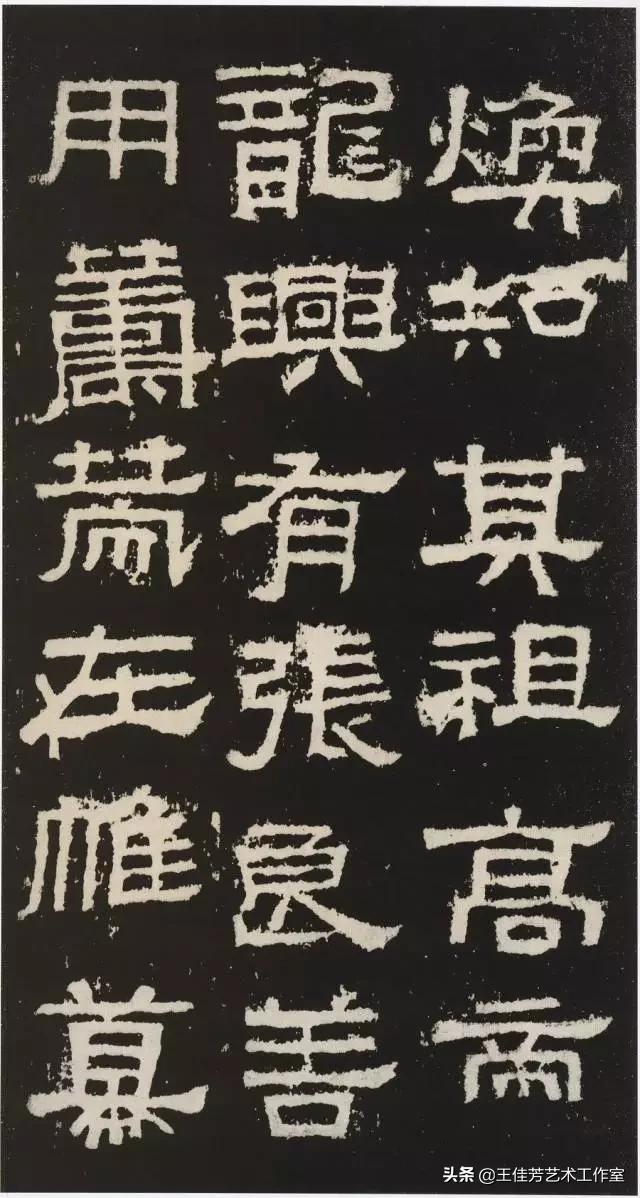 煥知其祖高帝
龍興有張良善
用籌策在帷幕
头条 @王佳芳艺术工作室